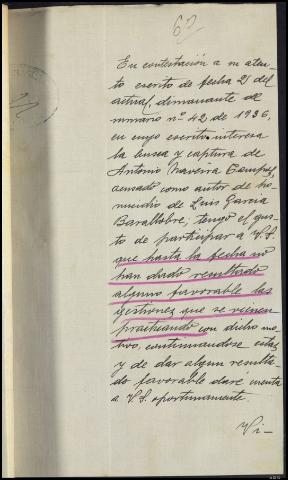 62
En contestación a su aten-
to escrito de fecha 21 del
actual, dimanante del
sumario nº 42 de 1936,
en cuyo escrito interesa
la busca y captura de
Antonio Naveira Campos,
acusado como autor de ho-
micidio de Luis García
Barallobre; tengo el gus-
to de participar a V.S.
que hasta la fecha no
han dado resultado
alguno favorable las
gestiones que se vienen
practicando con dicho mo-
tivo, continuandose estas
y de dar algun resulta-
do favorable daré cuenta
a V.S. oportunamente.
Vi-